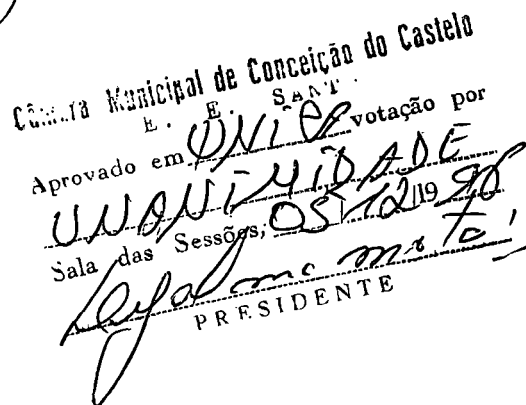 Câmara Municipal de Conceição do Castelo
E. E. SANT.
Aprovado em ÚNICA votação por
UNANIMIDADE
Sala das Sessões, 05/12/1990
PRESIDENTE